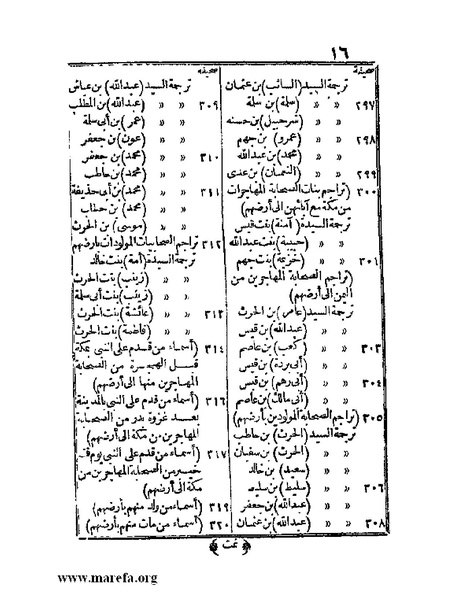 ١٦
صحيفه
ترجمة السيد (السائب) بن عثمان
٢٩٧ « « (سلمة) بن سلمة
« « (شرحبيل) بن حسنه
٢٩٨ « « (عمرو) بن جهم
« « (محمد) بن عبدالله
٢٩٩ « « (النعمان) بن عدى
٣٠٠ (تراجم بنات الصحابة المهاجرات
من مكة مع آبائهن الى أرضهم)
ترجمة السيدة (آمنة) بنت قيس
« « (حبيبة) بنت عبدالله
٣٠١ « « (خزيمة) بنت جهم
(تراجم الصحابة المهاجرين من
اليمن الى أرضهم)
ترجمة السيد (عامر) بن الحرث
« « (عبدالله) بن قيس
٣٠٣ « « (كعب) بن عاصم
« « (أبى بردة) بن قيس
٣٠٤ « « (أبى رهم) بن قيس
« « (أبى مالك) بن عاصم
٣٠٥ (تراجم الصحابة المولودين بأرضهم)
ترجمة السيد (الحرث) بن حاطب
« « (الحرث) بن سفيان
« « (سعيد) بن خالد
٣٠٦ « « (سليط) بن سليط
« « (عبدالله) بن جعفر
٣٠٨ « « (عبدالله) بن عثمان
صحيفه
ترجمة السيد (عبدالله) بن عياش
٣٠٩ « « (عبدالله) بن المطلب
« « (عمر) بن أبى سلمة
« « (عون) بن جعفر
٣١٠ « « (محمد) بن جعفر
« « (محمد) بن حاطب
٣١١ « « (محمد) بن أبى حذيفة
« « (محمد) بن حطاب
« « (موسى) بن الحرث
٣١٢ تراجم الصحابيات المولودات بارضهم
ترجمة السيدة (أمة) بنت خالد
« « (زينب) بنت الحرث
« « (زينب) بنت أبى سلمة
٣١٣ « « (عائشة) بنت الحرث
« « (فاطمة) بنت الحرث
٣١٤ (أسماء من قدم على النبى بمكة
قبل الهجرة من الصحابة
المهاجرين منها الى أرضهم)
٣١٦ (أسماء من قدم على النبى بالمدينة
بعد غزوة بدر من الصحابة
المهاجرين من مكة الى أرضهم)
٣١٧ (أسماء من قدم على النبى يوم فتح
خيبر من الصحابة المهاجرين من
مكة الى أرضهم)
٣١٩ (أسماء من ولد منهم بأرضهم)
٣٢٠ (أسماء من مات منهم بأرضهم)
﴿تمت﴾
www.marefa.org